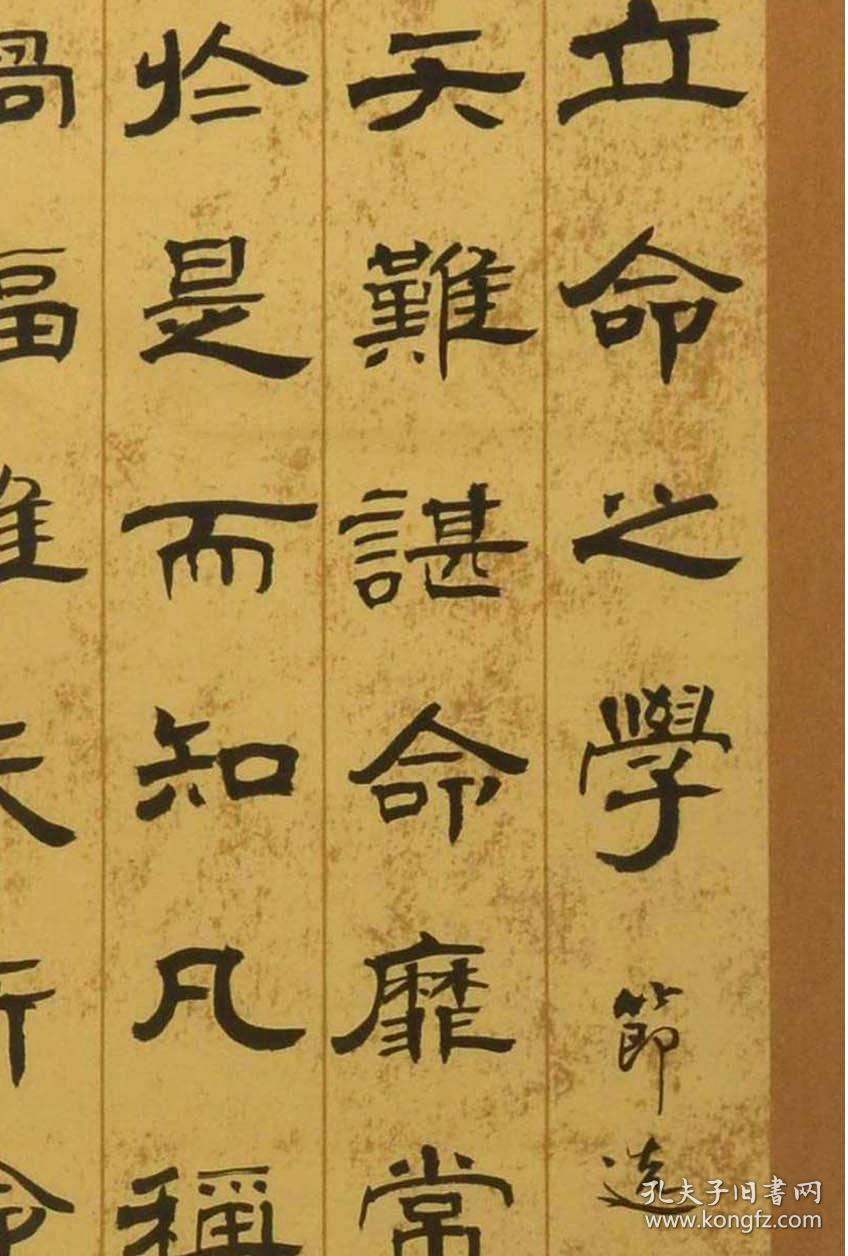 立命之學 節選
天難諶命靡常
於是而知凡稱
禍福惟天所命
孔夫子旧书网
www.kongfz.com